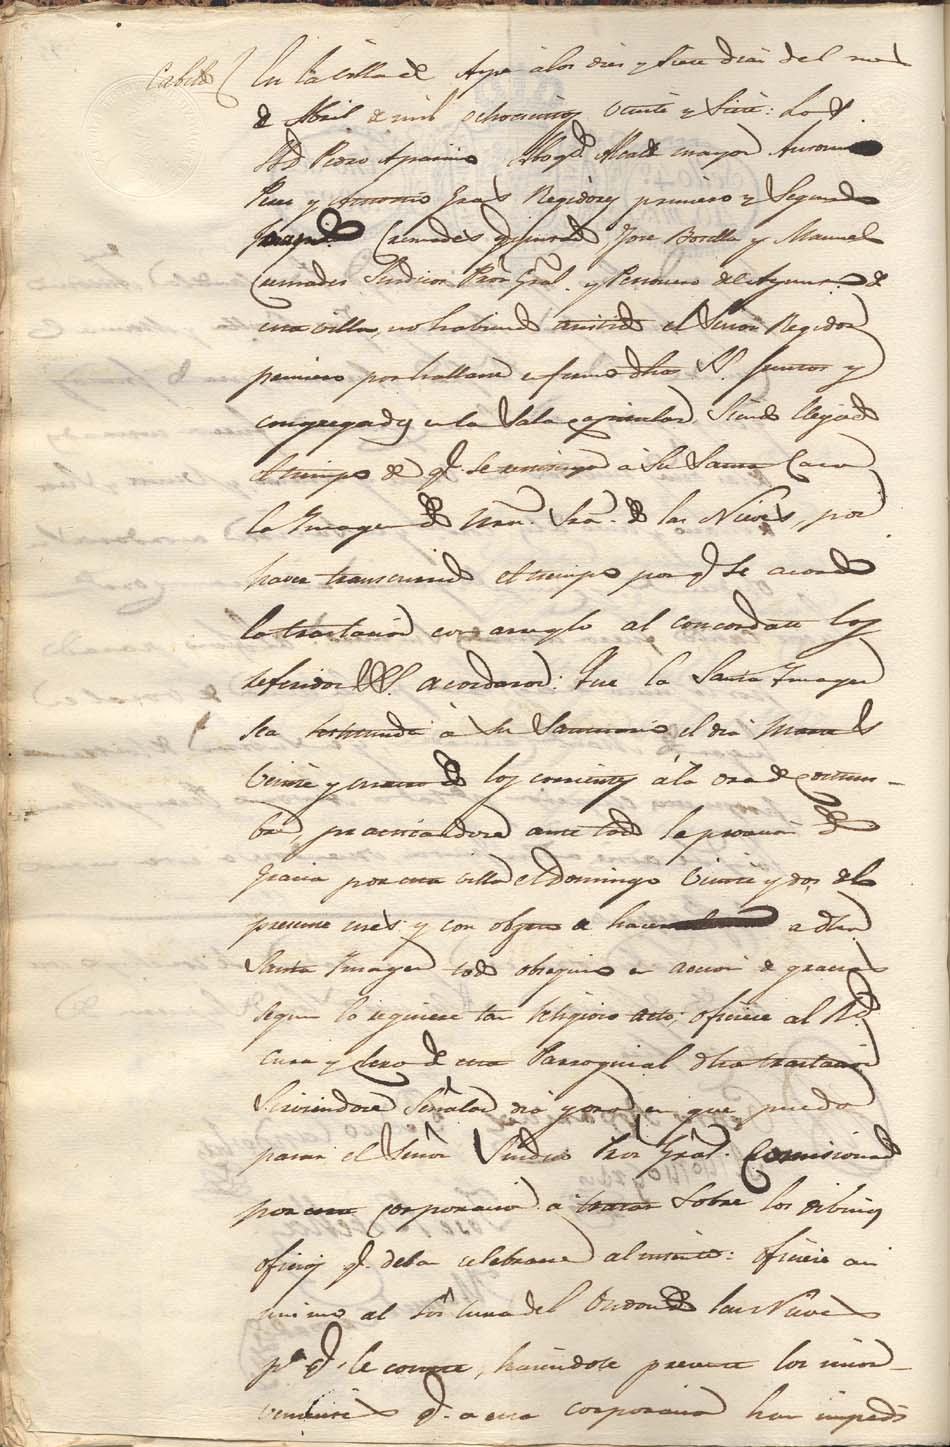 Cabildo En la villa de Aspe a los dies y siete dias del mes
de Abril de mil ochocientos veinte y siete: Los S.
D. Pedro Aparicio Abog.do Alcalde mayor Antonio
Perez y Antonio Gras Regidores primero y segundo
Cremades diputado Jose Botella y Manuel
Cremades Sindicos Pror Gral. y Personero del Ayunt.o de
esta villa, no habiendo asistido el Señor Regidor
primero por hallarse enfermo dhos SS. juntos y
congregados en la Sala capitular siendo llegado
el tiempo de q.e se restituya a su Santa Casa
la Imagen de Ntra. Sra. de las Nieves, por
haver transcurrido el tiempo por q.e se acordó
la traslacion con arreglo al concordato los
referidos SS. acordaron: Que la Santa Imagen
sea restituida á su Santuario el dia Martes
veinte y cuatro de los corrientes á la ora de costum-
bre, practicandose ante todo la procesion de
gracia por esta villa el Domingo veinte y dos del
presente mes: y con objeto de hacer a dha
Santa Imagen todo obsequio en accion de gracias
segun lo requiere tan religioso acto; oficiese al Rdo
Cura y clero de esta Parroquial dha traslacion
sirviendose señalar dia y ora en que pueda
pasar el Señor Sindico Pror Gral. Comisionado
por esta corporacion a tratar sobre los dibinos
oficios q.e deban celebrarse al intento: oficiese asi
mismo al Sor Cura del Ondon de las Nieves
p.a q.e le conste, haciendole presente los incon-
venientes q.e a esta corporacion han impedi